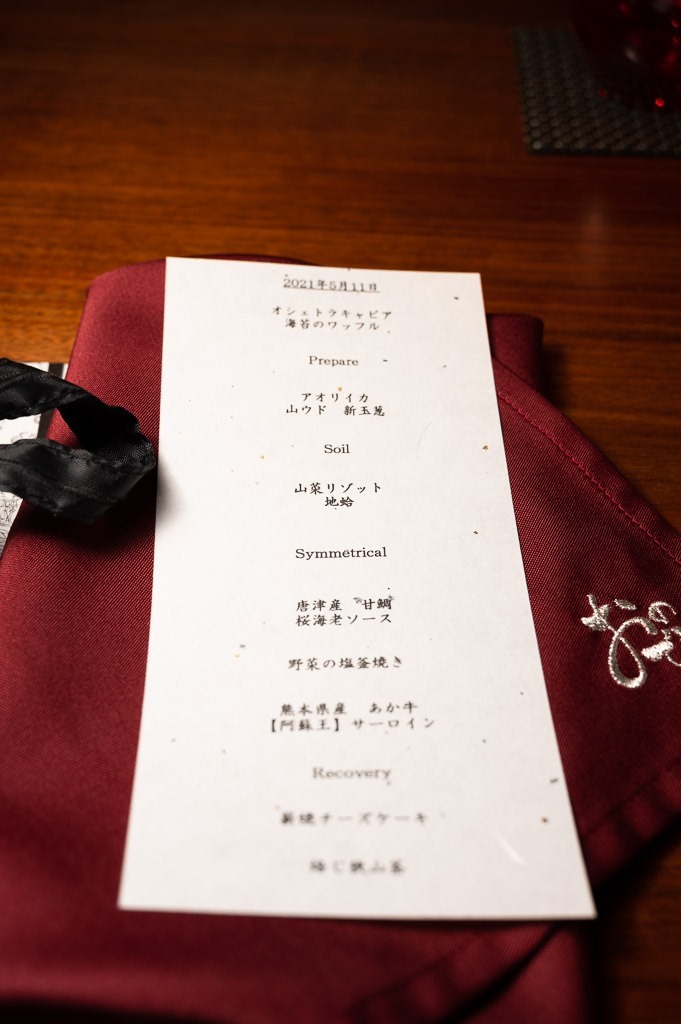 2021年5月11日
オシェトラキャビア
海苔のワッフル
Prepare
アオリイカ
山ウド 新玉葱
Soil
山菜リゾット
地蛤
Symmetrical
唐津産 甘鯛
桜海老ソース
野菜の塩釜焼き
熊本県産 あか牛
【阿蘇王】サーロイン
Recovery
チーズケーキ